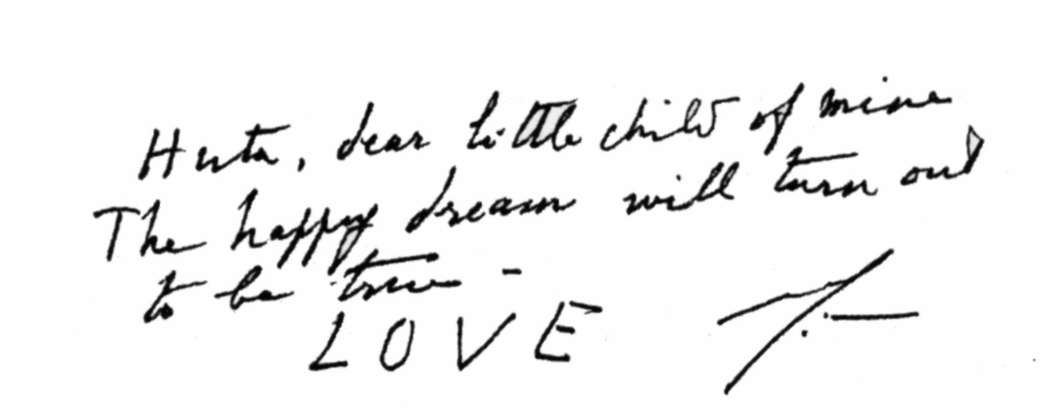 Huta, dear little child of mine
The happy dream will turn out
to be true -
LOVE